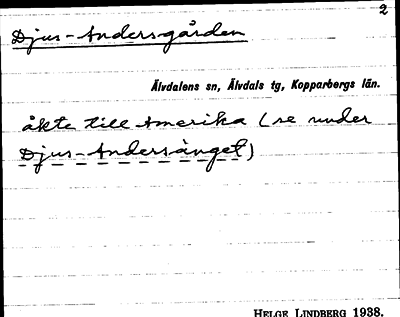 2
Djus-Andersgården
Älvdalens sn, Älvdals tg, Kopparbergs län.
åkte till Amerika (se under
Djus-Andersänget)
HELGE LINDBERG 1938.